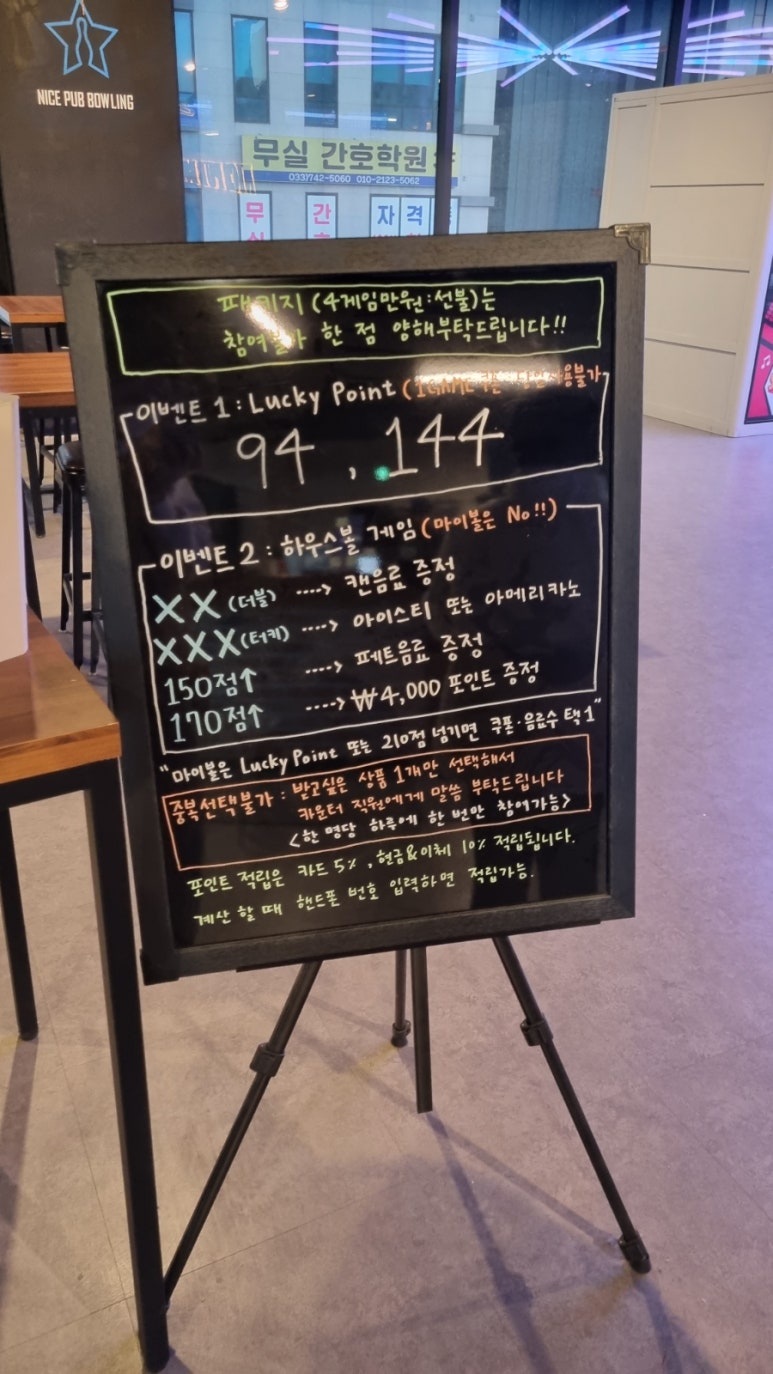 NICE PUB BOWLING
무실 간호학원
033)742-5060 010-2123-5062
무 간 자격
패키지 (4게임만원:선불)는
참여불가 한 점 양해부탁드립니다!!
이벤트 1: Lucky Point (1GAME
94, 144
이벤트 2 : 하우스볼 게임 (마이볼은 No!!)
XX (더블) ----> 캔음료 증정
XXX (터키) ----> 아이스티 또는 아메리카노
150점↑ ----> 페트음료 증정
170점↑ ----> ₩4,000 포인트 증정
"마이볼은 Lucky Point 또는 210점 넘기면 쿠폰·음료수 택1"
중복선택불가 : 받고싶은 상품 1개만 선택해서
카운터 직원에게 말씀 부탁드립니다
<한 명당 하루에 한 번만 참여가능>
포인트 적립은 카드 5%, 현금&이체 10% 적립됩니다.
계산 할 때 핸드폰 번호 입력하면 적립가능.